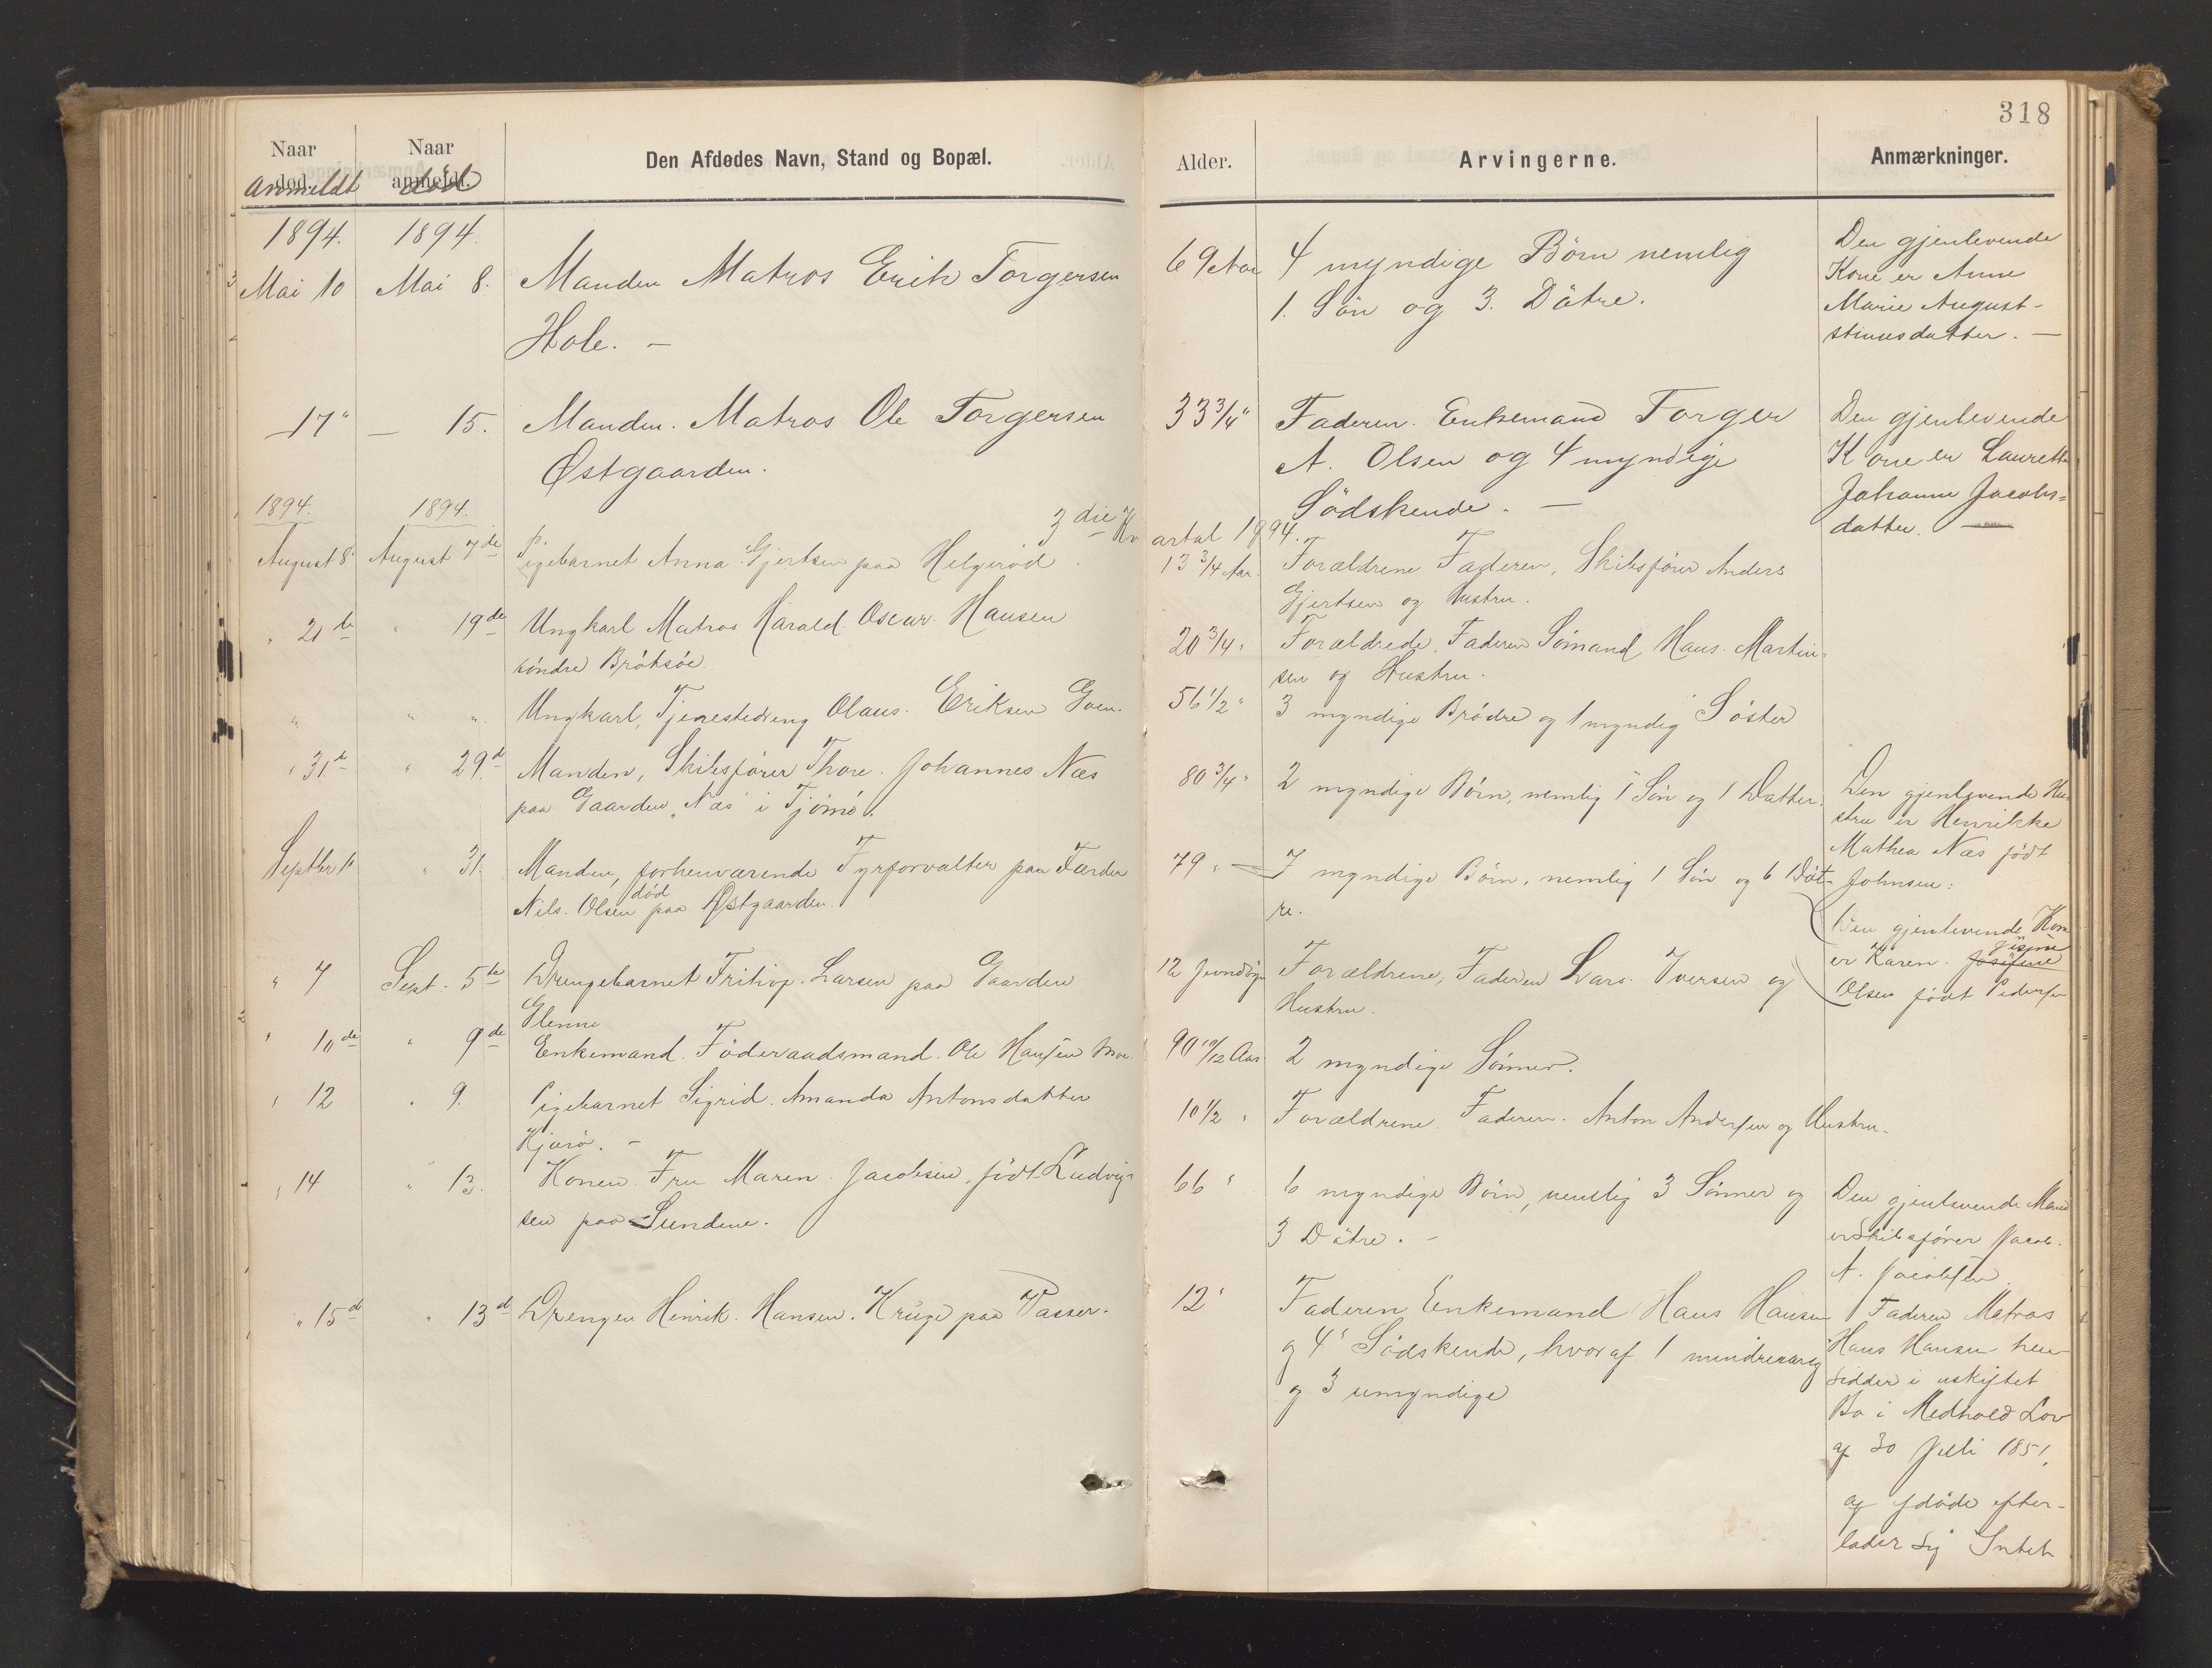 318
Naar død. Naar anmeldt. Den Afdødes Navn, Stand og Bopæl. Alder. Arvingerne. Anmærkninger.
anmeldt død
1894. 1894.
Mai 10 Mai 8. Manden Matros Erik Torgersen
Hole. —
69 Aar
4 myndige Börn nemlig
1. Sön og 3. Dötre.
Den gjenlevende
Kone er Anne
Marie August-
stinusdatter. —
— 17 " — 15. Manden. Matros Ole Torgersen
Østgaarden.
33 3/4 "
Faderen. Enkemand Torger
A. Olsen og 4 myndige
Södskende. —
Den gjenlevende
Kone er Laurette
Johanne Jacobs-
datter. —
3die Kvartal 1894.
1894. 1894.
August 8 August 7de Pigebarnet Anna Gjertsen paa Helgerød.
13 3/4 Aar.
Forældrene Faderen, Skibsfører Anders
Gjertsen og Hustru.
" 21de " 19de Ungkarl Matros Harald Oscar Hansen
söndre Brötsöe.
20 3/4 "
Forældrede, Faderen Sömand Hans Martin-
sen og Hustru.
" " " Ungkarl, Tjenestedreng Olaus Eriksen Goen.
56 1/2 "
3 myndige Brödre og 1 myndig Söster
" 31te " 29de Manden, Skibsfører Thore Johannes Næs
paa Gaarden "Næs" i Tjömö.
80 3/4 "
2 myndige Börn, nemlig 1 Sön og 1 Datter.
Den gjenlevende Hu-
stru er Henrikke
Mathea Næs født
Johnsen:
Septber 1 " 31. Manden, forhenværende Fyrforvalter paa Færder
Nils Olsen død paa Østgaarden.
79 " —
7 myndige Börn, nemlig 1 Sön og 6 Döt-
re.
Den gjenlevende Kone
er Karen Josefine
Olsen født Pedersen
" 7 Sept. 5te Drengebarnet Fritiop Larsen paa Gaarden
Glenne
12
Forældrene, Faderen Lars Iversen og
Hustru.
" 10de " 9de Enkemand Föderaadsmand Ole Hansen Moe
90 10/12 Aar
2 myndige Sönner.
" 12 " 9. Pigebarnet Sigrid Amanda Antonsdatter
Kjærö. —
10 1/2 "
Forældrene. Faderen. Anton Andersen og Hustru.
" 14 " 13. Konen Fru Maren Jacobsen, født Ludvig-
sen paa Sundene.
66 "
6 myndige Börn, nemlig 3 Sönner og
3 Dötre. —
Den gjenlevende Mand
er Skibsfører Jacob
A. Jacobsen
" 15de " 13de Drengen Henrik Hansen Kruge paa Vasser.
12 "
Faderen Enkemand Hans Hansen
og 4 Södskende, hvoraf 1 mindreaarig
og 3 umyndige
Faderen Matros
Hans Hansen hen-
sidder i uskiftet
Bo i Medhold Lov
af 30 Juli 1851,
af døde efter-
lader sig Intet